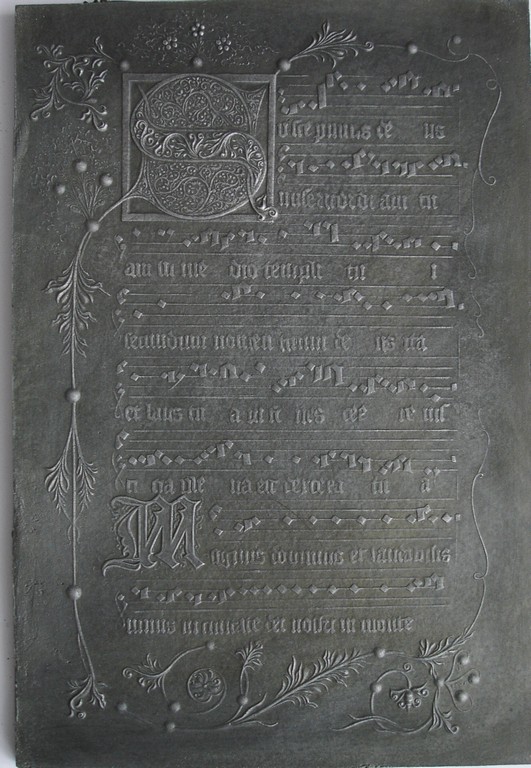 Suscepimus de us
misericordi am tu
am in me dio templi tu i
secundum nomen tuum de us ita
et laus tu a in fi nes ter re ius
ti cia ple na est dexte ra tu a
Magnus dominus et laudabilis
nimis in civitate dei nostri in monte